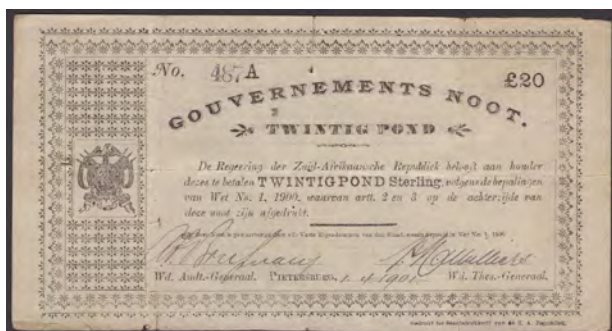 No. 487 A £20
GOUVERNEMENTS NOOT.
TWINTIG POND
De Regeering der Zuid-Afrikaansche Republiek belooft aan houder
dezes te betalen TWINTIG POND Sterling, volgens de bepalingen
van Wet No. 1, 1900, waarvan artt. 2 en 3 op de achterzijde van
deze noot zijn afgedrukt.
Wd. Audt.-Generaal. PIETERSBURG, 1-4-1901 Wd. Thes.-Generaal.